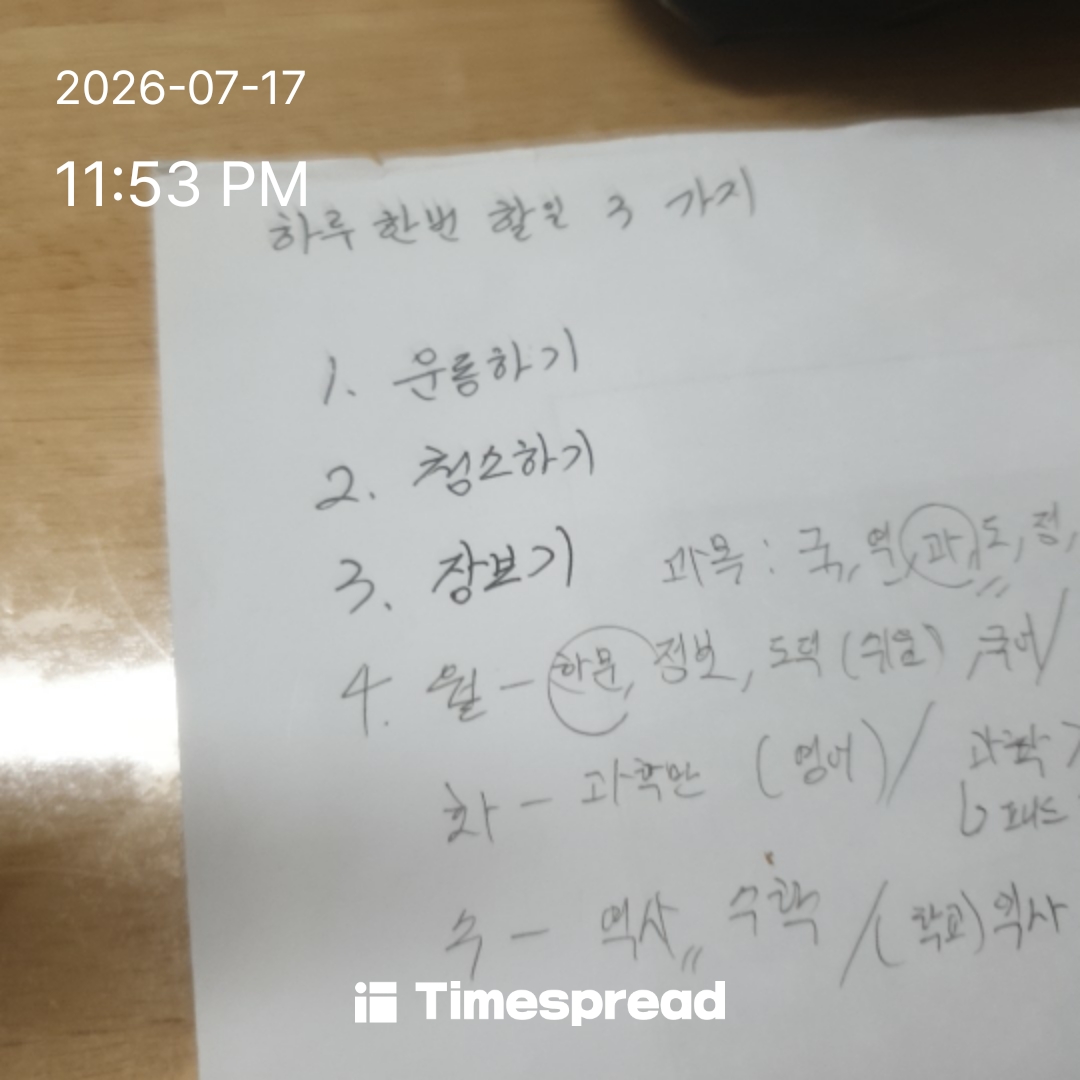 2026-07-17
11:53 PM
하루 한번 할일 3 가지
1. 운동하기
2. 청소하기
3. 장보기
과목 : 국,, 역, 과, 도, 정,
4. 월 - 한문, 정보, 도덕 (쉬움), 국어/
화 - 과학만 (영어) / 과학
수 - 역사,, 수학 / (학교) 역사
Timespread